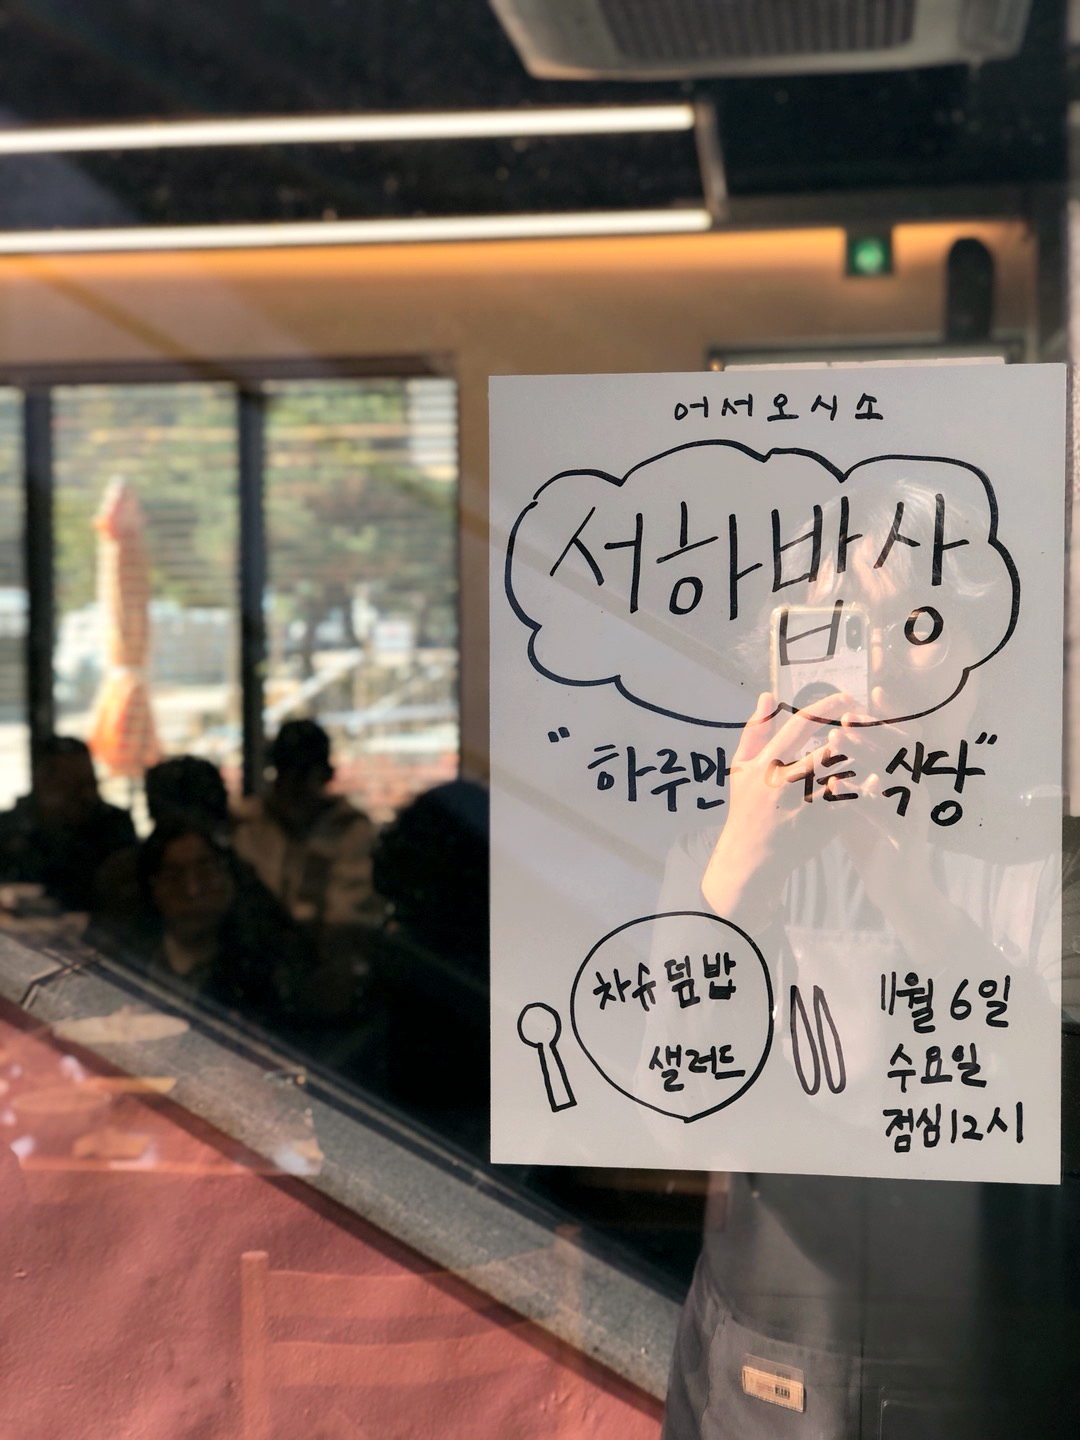 어서오시소
서하밥상
"하루만 여는 식당"
차슈덮밥
샐러드
11월 6일
수요일
점심 12시